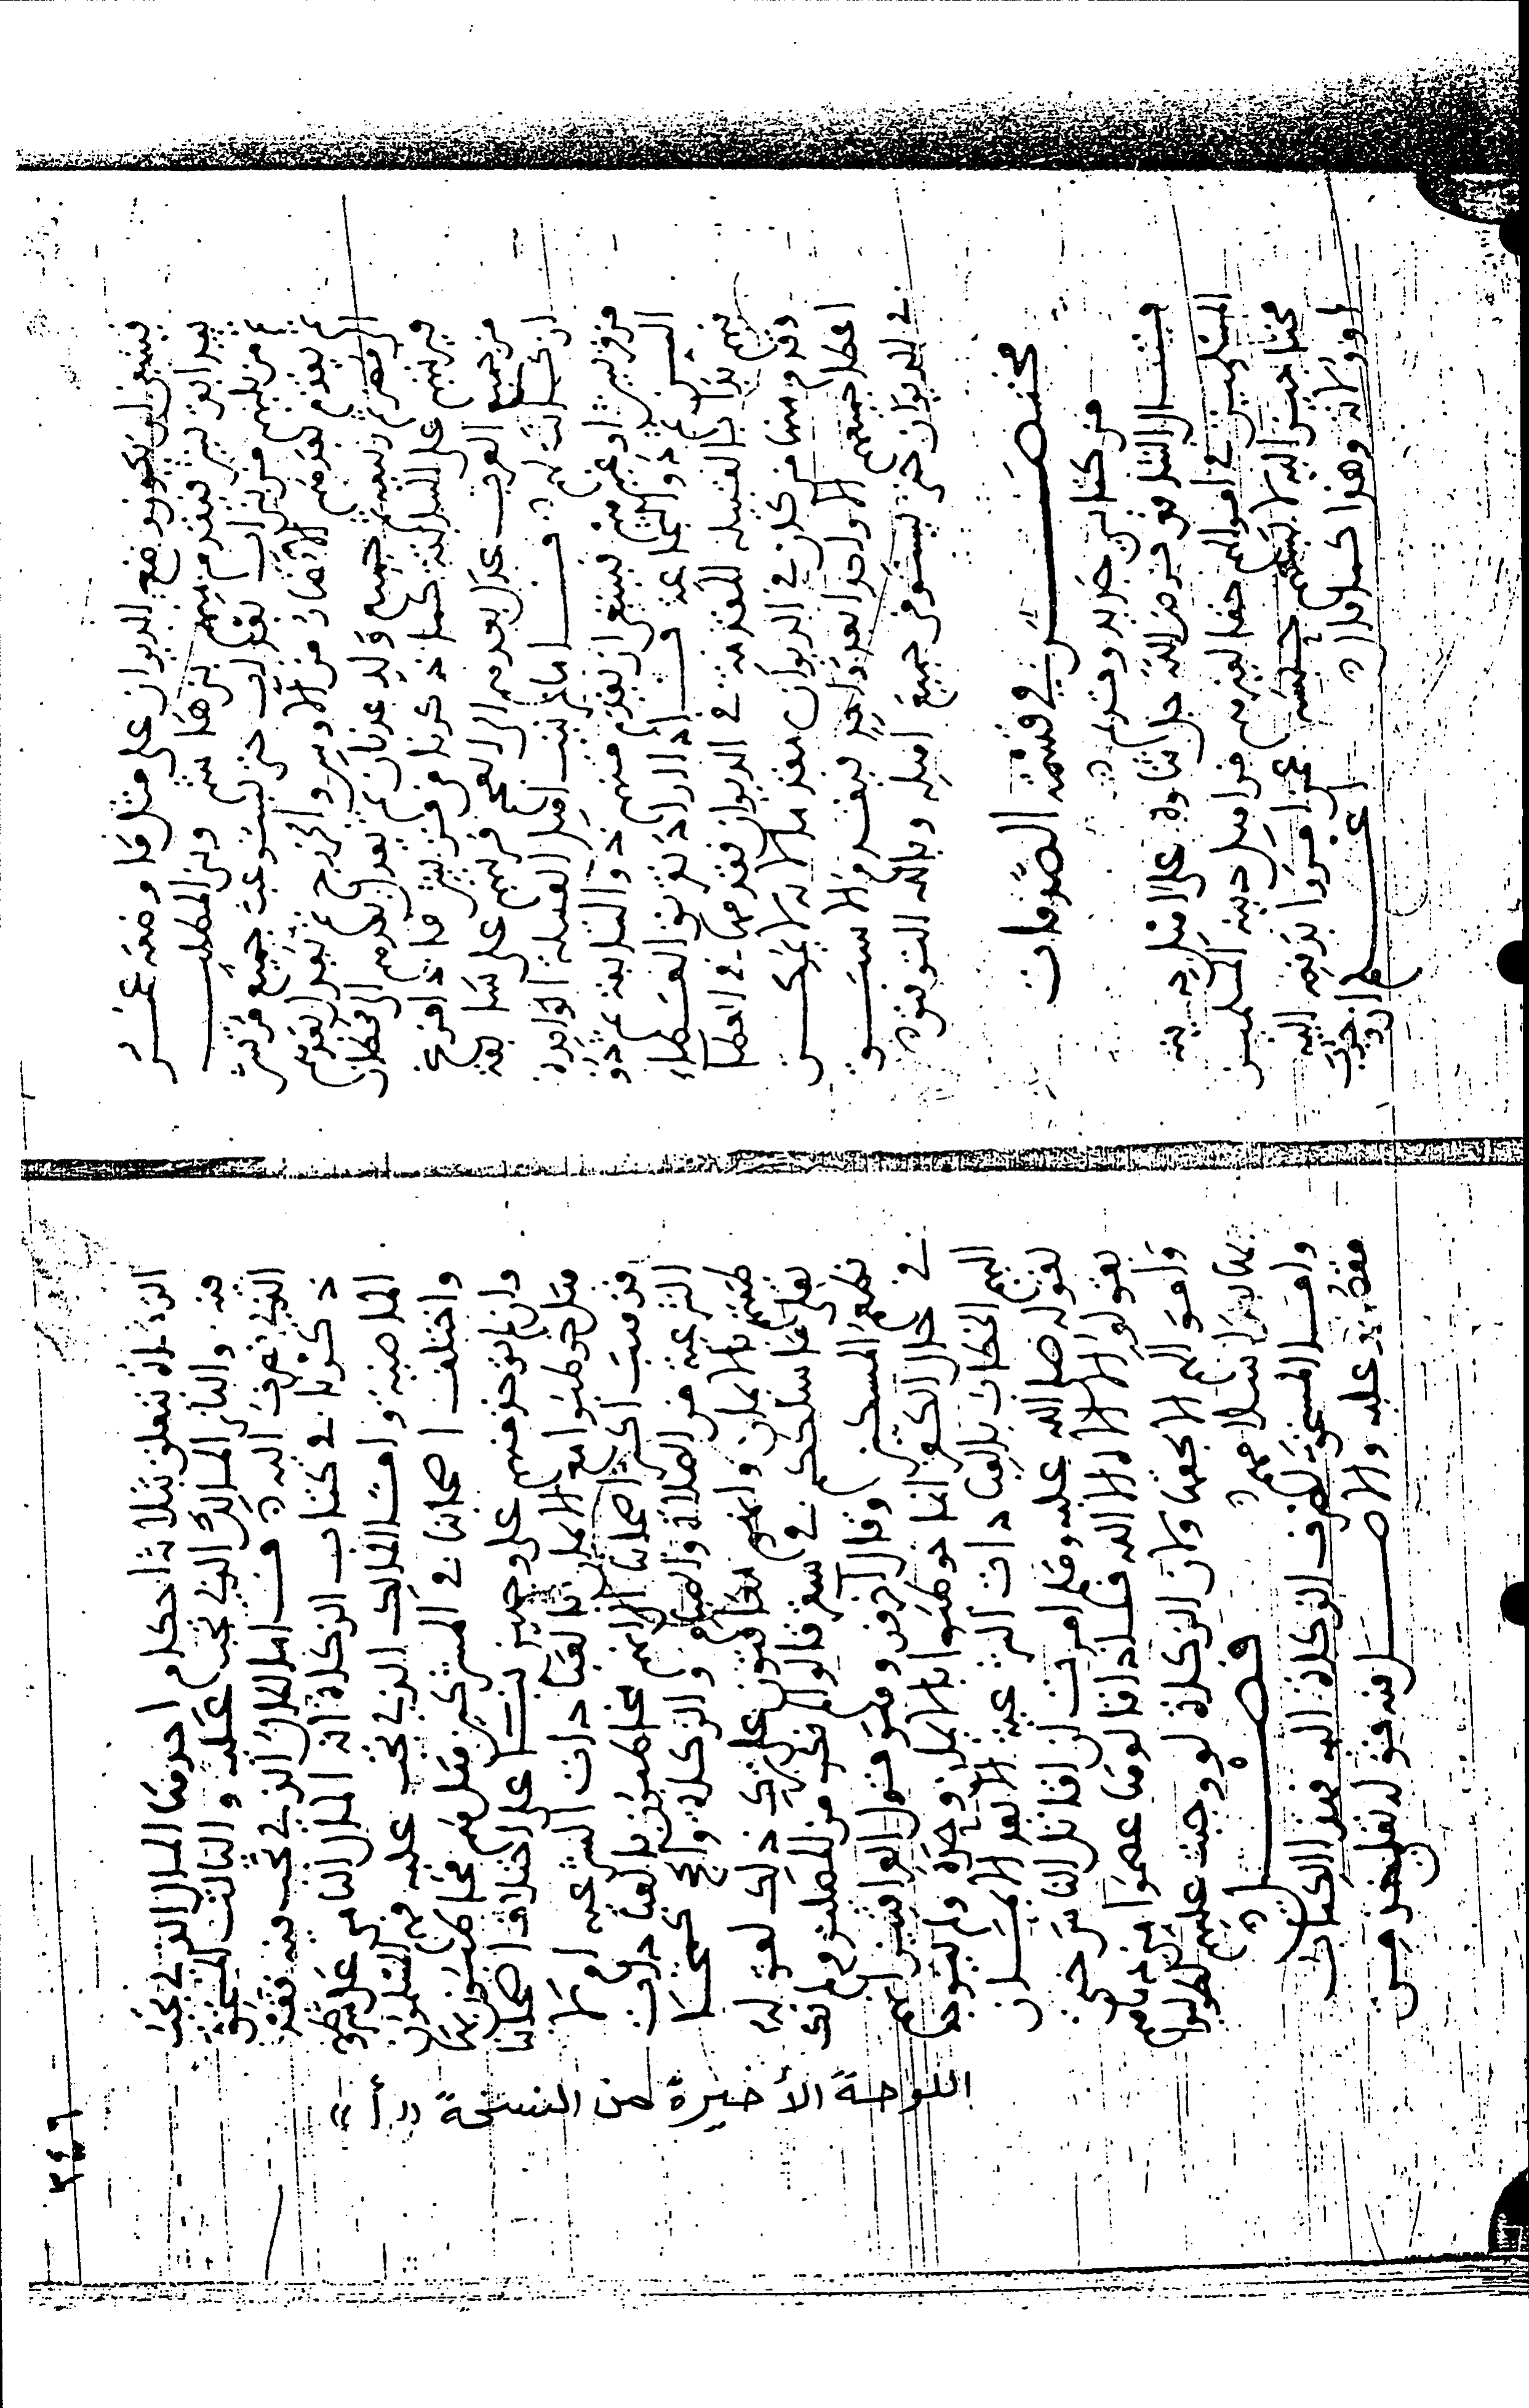 ينبغي ان يكون وضع الديوان على مثل ما وضعه عمر
يبدا بقريش فيقدم منهم بنو هاشم وبنو المطلب
ثم من يليهم من بني اب بعد اب حتى يستوعب جميع قريش
ثم يقدم بعدهم الانصار من الاوس والخزرج ثم
مضر ثم ربيعة ثم جميع ولد عدنان ثم يعدل بعدهم الى قحطان
فيرتبهم على السابقة كما ذكرنا في قريش فاذا فرغ
من جميع العرب عدل بعدهم الى العجم فرتبهم على سابقة
ان كانت لهم فصل اما ترتيب اهل القبيلة الواحدة
من قريش او غيرهم فينبغي ان يقدم منهم ذو السابقة ثم ذو
السن ثم ذو الشجاعة فاذا اراد تفريق العطاء
فيهم بدا بالقبيلة المقدمة في الديوان فقدمها في العطا
وقدم منها من كان في الديوان مقدما لانه لا يمكن
اعطا جميعهم الا واحدا بعد واحد فيقدم الاسبق
في الديوان حتى يستوفي جميع اهله وبالله التوفيق
مختصر في قسمة الصدقات
من كتابين جديد وقديم
قال الشافعي فرض الله جل ثناوه على اهل دينه
المسلمين في اموالهم حقا لغيرهم من اهل دينه المسلمين
محتاجين اليه لا يسعهم حبسه عمن امروا بدفعه اليه
او ولاته وهذا كما قال اعلم ان وجوب
الزكاة تتعلق بثلاثة احكام احدها المال الذي تجب
فيه والثاني المالك الذي تجب عليه والثالث المستحق
الذي تصرف اليه فاما المال الذي تجب فيه فقد
ذكرنا في كتاب الزكاة انه المال النامي على
الماضية واما المالك الذي تجب عليه فهم المسلمون
واختلف اصحابنا في المشركين هل هم مخاطبون بها
وان لم توخذ منهم على وجهين بناء على اختلاف اصحابنا
هل خوطبوا مع الايمان بالعبادات الشرعية ام لا
فذهب اكثر اصحابنا الى انهم مخاطبون بالعبادات
الشرعية من الصلاة والصيام والزكاة والحج كمخا
طبتهم بالايمان وانهم معاقبون على ترك ذلك لقوله
تعالى ما سلككم في سقر قالوا لم نك من المصلين ولم نك
نطعم المسكين وقال آخرون وهو قول العراقيين انهم
في حال الكفر انما خوطبوا بالايمان وحده ولم يتوجه
اليهم الخطاب بالعبادات الشرعية الا بعد الايمان
لقوله صلى الله عليه وسلم امرت ان اقاتل الناس حتى
يقولوا لا اله الا الله فاذا قالوها عصموا مني دماهم
واموالهم الا بحقها ولان الزكاة لو وجبت عليهم لطولبوا
بها بعد اسلامهم فصل
واما المستحق لصرف الزكاة اليه فقد
عليه والاصل فيه قوله تعالى خذ من
اللوحة الأخيرة من النسخة «أ»
٣٤٦